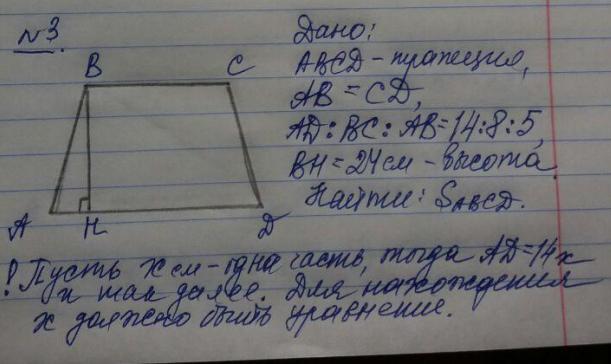 №3.
Дано:
ABCD - трапеция,
AB = CD,
AD:BC:AB=14:8:5,
BH = 24см - высота.
Найти: SABCD.
B C
A H D
! Пусть x см - одна часть, тогда AD=14x
и так далее. Для нахождения
x должно быть уравнение.